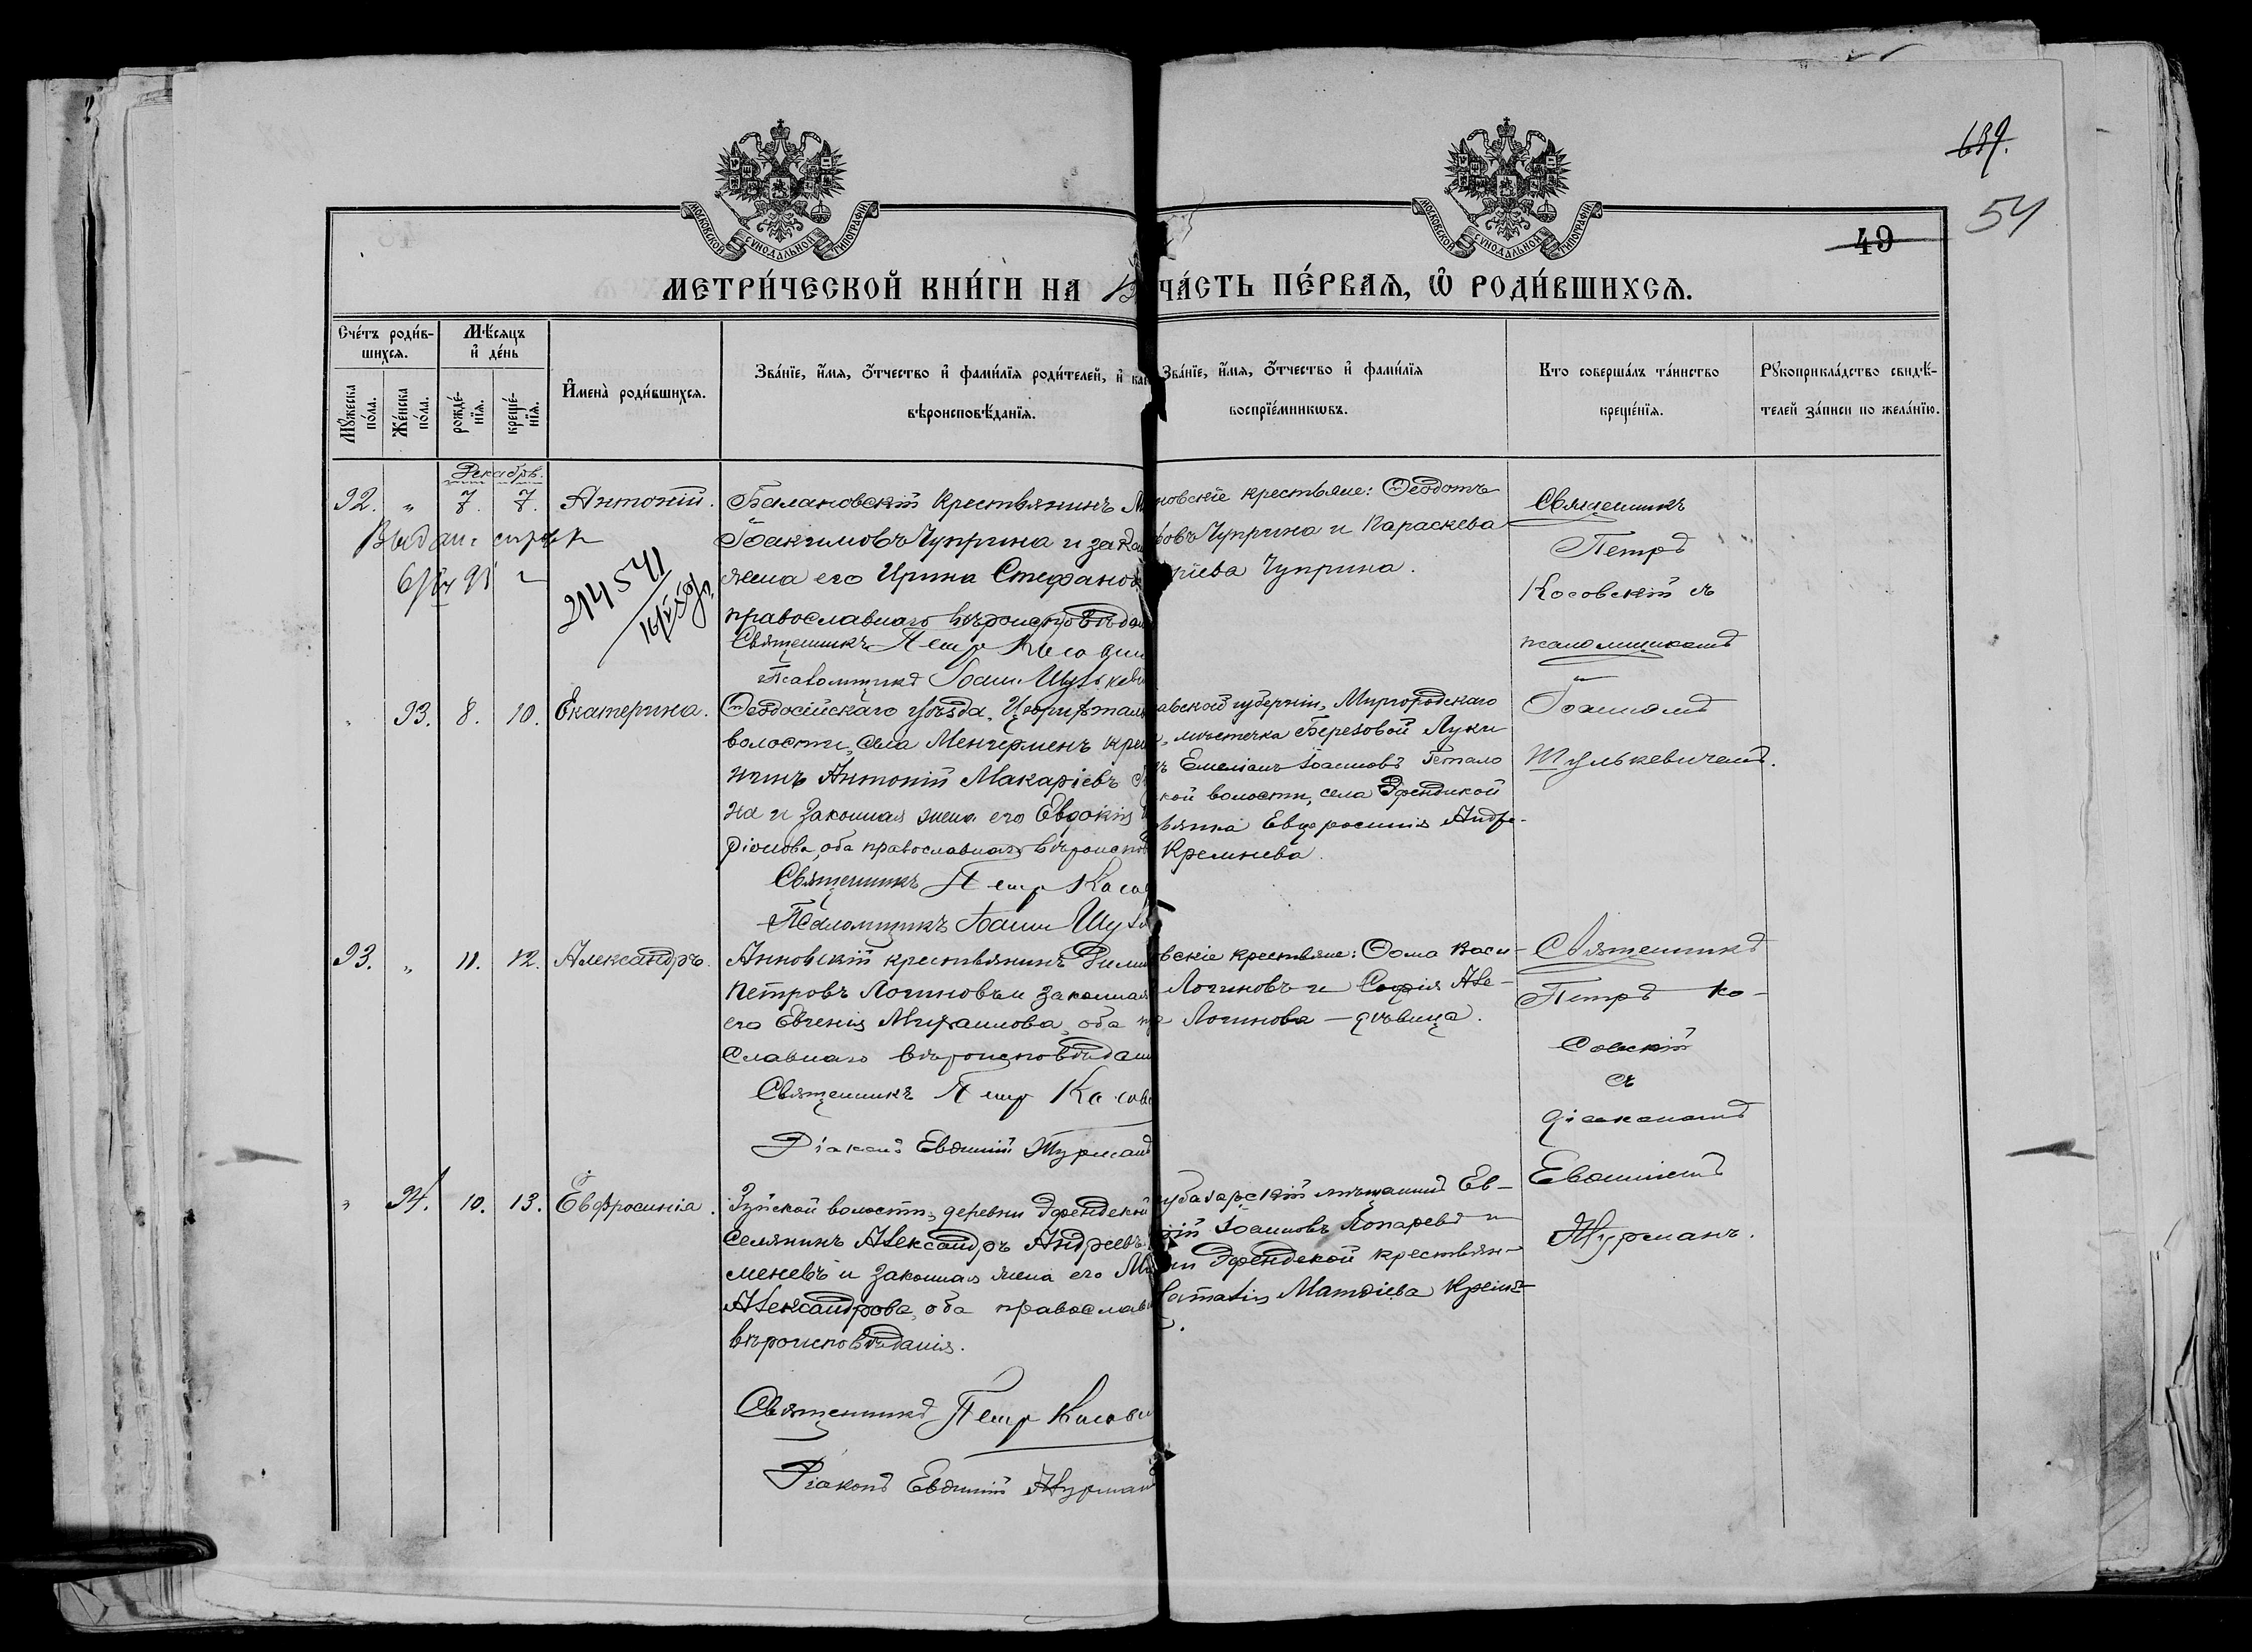 639.
54
49
МОСКОВСКОЙ СѴНОДАЛЬНОЙ ТИПОГРАФІИ
МОСКОВСКОЙ СѴНОДАЛЬНОЙ ТИПОГРАФІИ
МЕТРИ́ЧЕСКОЙ КНИ́ГИ НА
ЧА́СТЬ ПЕ́РВАѦ, Ѽ РОДИ́ВШИХСѦ.
Сче́тъ роди́в-
шихсѧ.
Мѣ́сѧцъ
и҆ де́нь
Мꙋ́жеска по́ла.
Же́нска по́ла.
рожде́-
нїѧ.
креще́-
нїѧ.
И҆мена̀ роди́вшихсѧ.
Зва́нїе, и҆́мѧ, ѻ҆́тчество и҆ фами́лїѧ роди́телей, и҆ как
вѣроисповѣ́данїѧ.
Зва́нїе, и҆́мѧ, ѻ҆́тчество и҆ фами́лїѧ
воспрїе́мникѡвъ.
Кто соверша́лъ та́инство
креще́нїѧ.
Рꙋкоприкла́дство свидѣ́-
телей за́писи по жела́нїю.
Декабрь.
92. " 7. 7. Антоній.
Балановскій крестьянинъ М
Іоакимовъ Чуприна и зако
жена его Ирина Стефанов
православнаго вѣроисповѣдан
Священникъ Петр Косовск
Псаломщикъ Іоанн Шулькеви
новскіе крестьяне: Ѳеодотъ
овъ Чуприна и Параскева
ріева Чуприна.
Священникъ
Петръ
Косовскій съ
псаломщикомъ
Выдана справк
24541
" 93. 8. 10. Екатерина.
Ѳеодосійскаго уѣзда, Цюрихталь
волости, села Менгерменъ крес
нинъ Антоній Макаріевъ
на и законная жена его Евдокія
ріонова, оба православнаго вѣроиспов
Священникъ Петр Косов
Псаломщикъ Іоанн Шуль
авской губерніи, Миргородскаго
, мѣстечка Березовой Луки
ъ Емеліанъ Іоанновъ Гетало
кой волости, села Эфендикой
ьянка Евфросинія Андре-
Кремнева.
Іоанномъ
Шулькевичемъ.
93. " 11. 12. Александръ.
Анновскій крестьянинъ Дими
Петровъ Логиновъ и законная
его Евгенія Михаилова, оба пра
славнаго вѣроисповѣдані
Священникъ Петр Косов
Діаконъ Евѳимій Журман
вскіе крестьяне: Ѳома Васи-
Логиновъ и Софія Але-
а Логинова — дѣвица.
Священникъ
Петръ Ко-
совскій
съ
діакономъ
Евѳиміемъ
Журманъ.
" 94. 10. 13. Евфросинія.
Зуйской волости, деревни Эфендекой
селянинъ Александръ Андреевъ
меневъ и законная жена его Ма
Александрова, оба православн
вѣроисповѣданія.
Священникъ Петр Косовск
Діаконъ Евѳимій Журман
убазарскій мѣщанинъ Ев-
ій Іоанновъ Лопаревъ и
ни Эфендекой крестьян-
Наталія Матѳіева Крем-